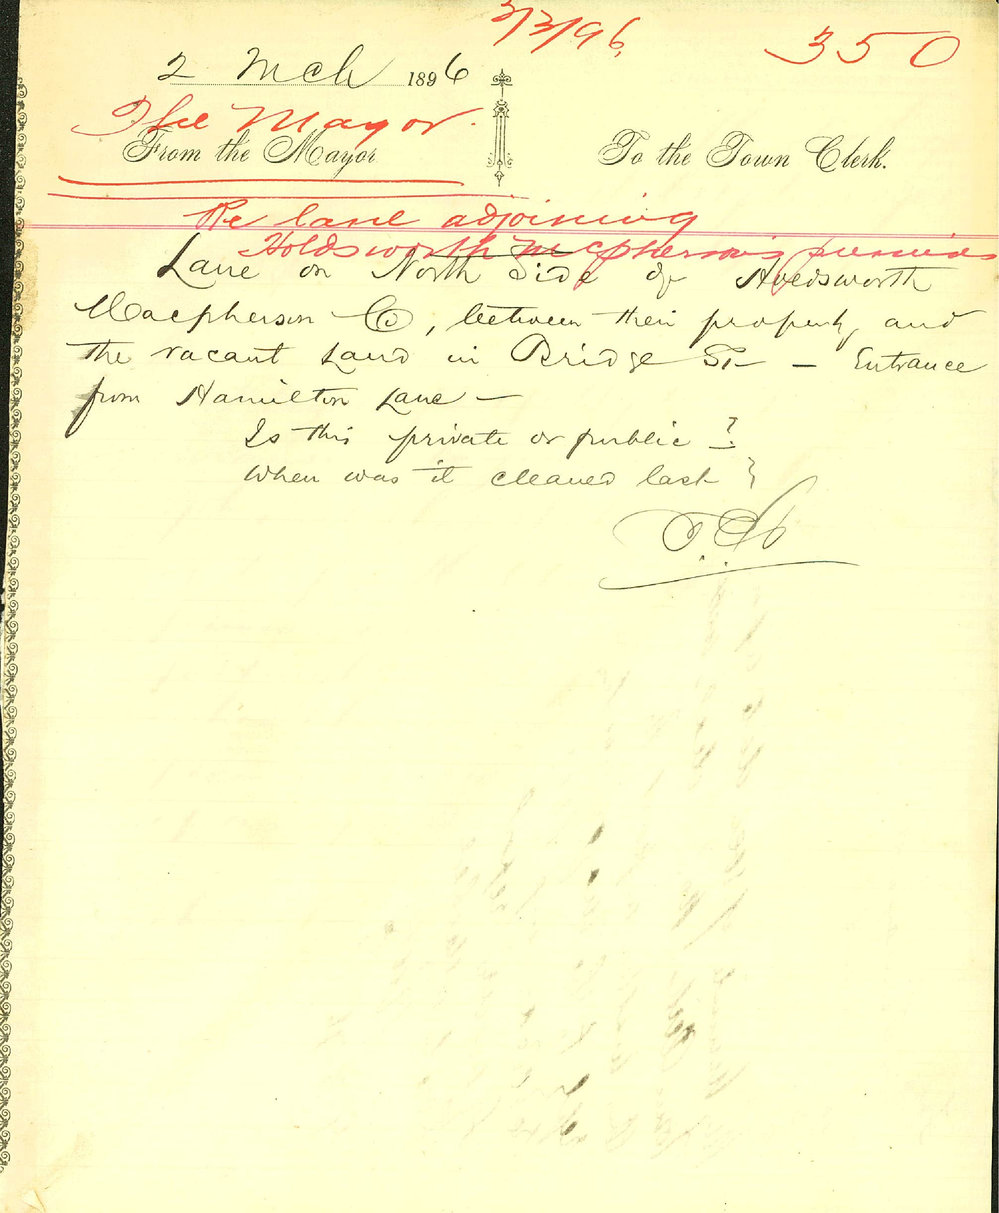 3/3/96.
350
2 Mch 1896
The Mayor.
From the Mayor
To the Town Clerk.
Re lane adjoining
Holdsworth McPhersons premises
Lane on North Side of Holdsworth
Macpherson & Co, between their property and
the vacant Land in Bridge St — Entrance
from Hamilton Lane —
Is this private or public ?
When was it cleaned last ?